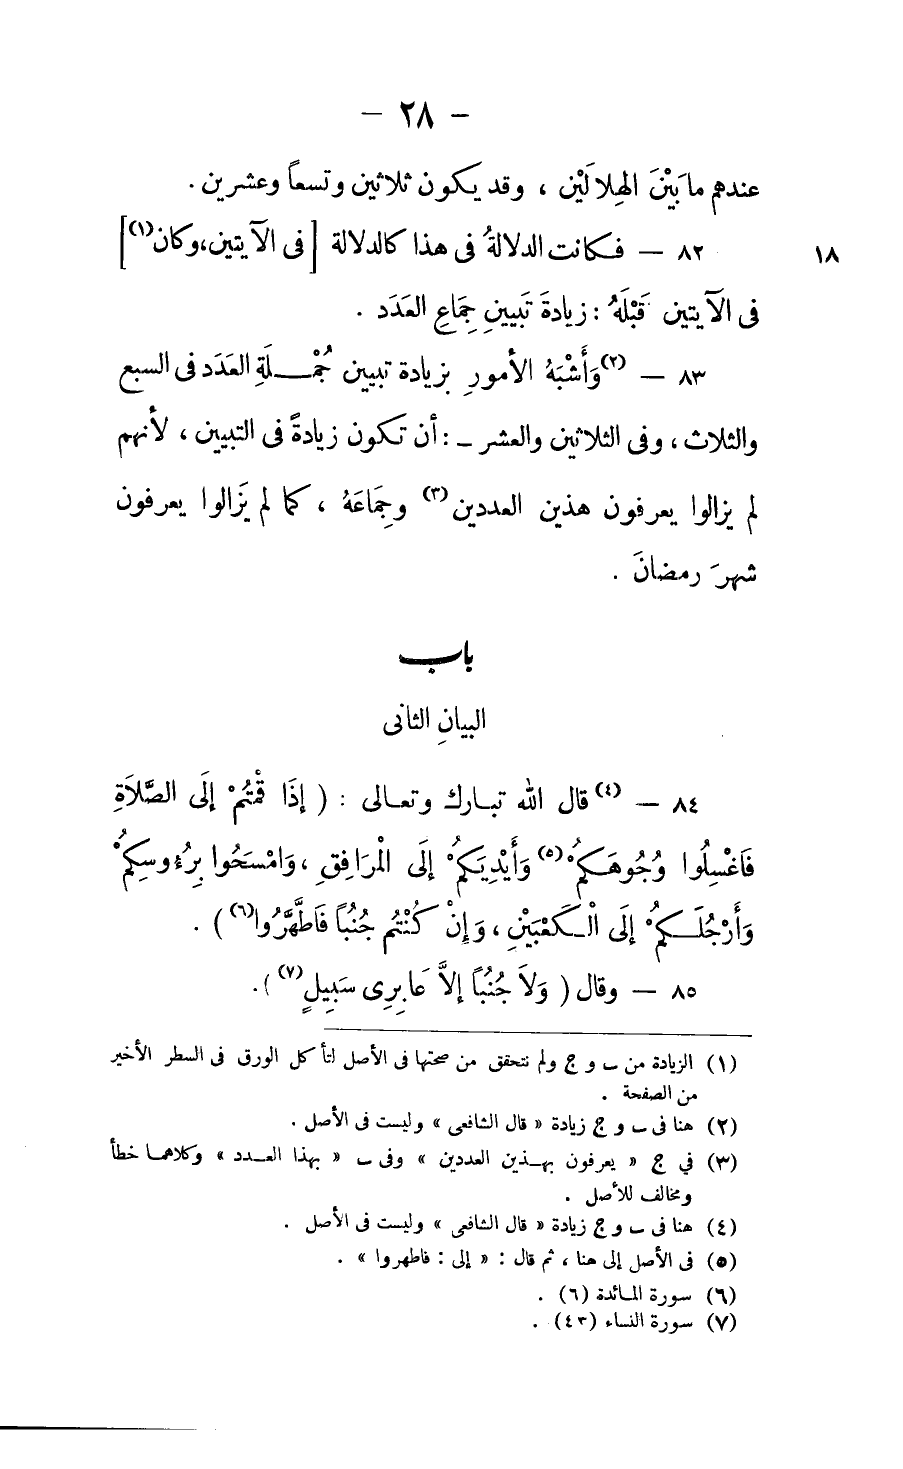 — ٢٨ —
عندهم ما بَيْنَ الهِلالَيْنِ ، وقد يكون ثلاثين وتسعاً وعشرين .
١٨
٨٢ — فكانت الدلالةُ فى هذا كالدلالة [ فى الآيتين،وكان(١) ]
فى الآيتين قَبْلَهُ : زيادةَ تَبيينِ جِمَاعِ العَدَد .
٨٣ — (٢)وَأَشْبَهُ الأمورِ بزيادة تبيين جُمْلَةِ العَدَد فى السبع
والثلاث ، وفى الثلاثين والعشر – : أن تكون زيادةً فى التبيين ، لأنهم
لم يزالوا يعرفون هذين العددين (٣) وجِمَاعَهُ ، كما لم يَزَالوا يعرفون
شهرَ رمضانَ .
باب
البيانِ الثانى
٨٤ — (٤)قال الله تبارك وتعالى : ( إِذَا قُمْتُمْ إِلَى الصَّلَاةِ
فَاغْسِلُوا وُجُوهَكُمْ(٥) وَأَيْدِيَكُمْ إِلَى الْمَرَافِقِ ، وَامْسَحُوا بِرُءُوسِكُمْ
وَأَرْجُلَكُمْ إِلَى الْكَعْبَيْنِ ، وَإِنْ كُنْتُم جُنُبًا فَاطَّهَّرُوا(٦) ) .
٨٥ — وقال ( وَلاَ جُنُبًا إِلاَّ عَابِرِى سَبِيلٍ(٧) ).
(١) الزيادة من ب و ج ولم نتحقق من صحتها فى الأصل لتأكل الورق فى السطر الأخير
من الصفحة .
(٢) هنا فى ب و ج زيادة « قال الشافعى » وليست فى الأصل .
(٣) في ج « يعرفون بهذين العددين » وفى ب « بهذا العدد » وكلاهما خطأ
ومخالف للأصل .
(٤) هنا فى ب و ج زيادة « قال الشافعى » وليست فى الأصل .
(٥) فى الأصل إلى هنا ، ثم قال : « إلى : فاطهروا » .
(٦) سورة المائدة (٦) .
(٧) سورة النساء (٤٣) .